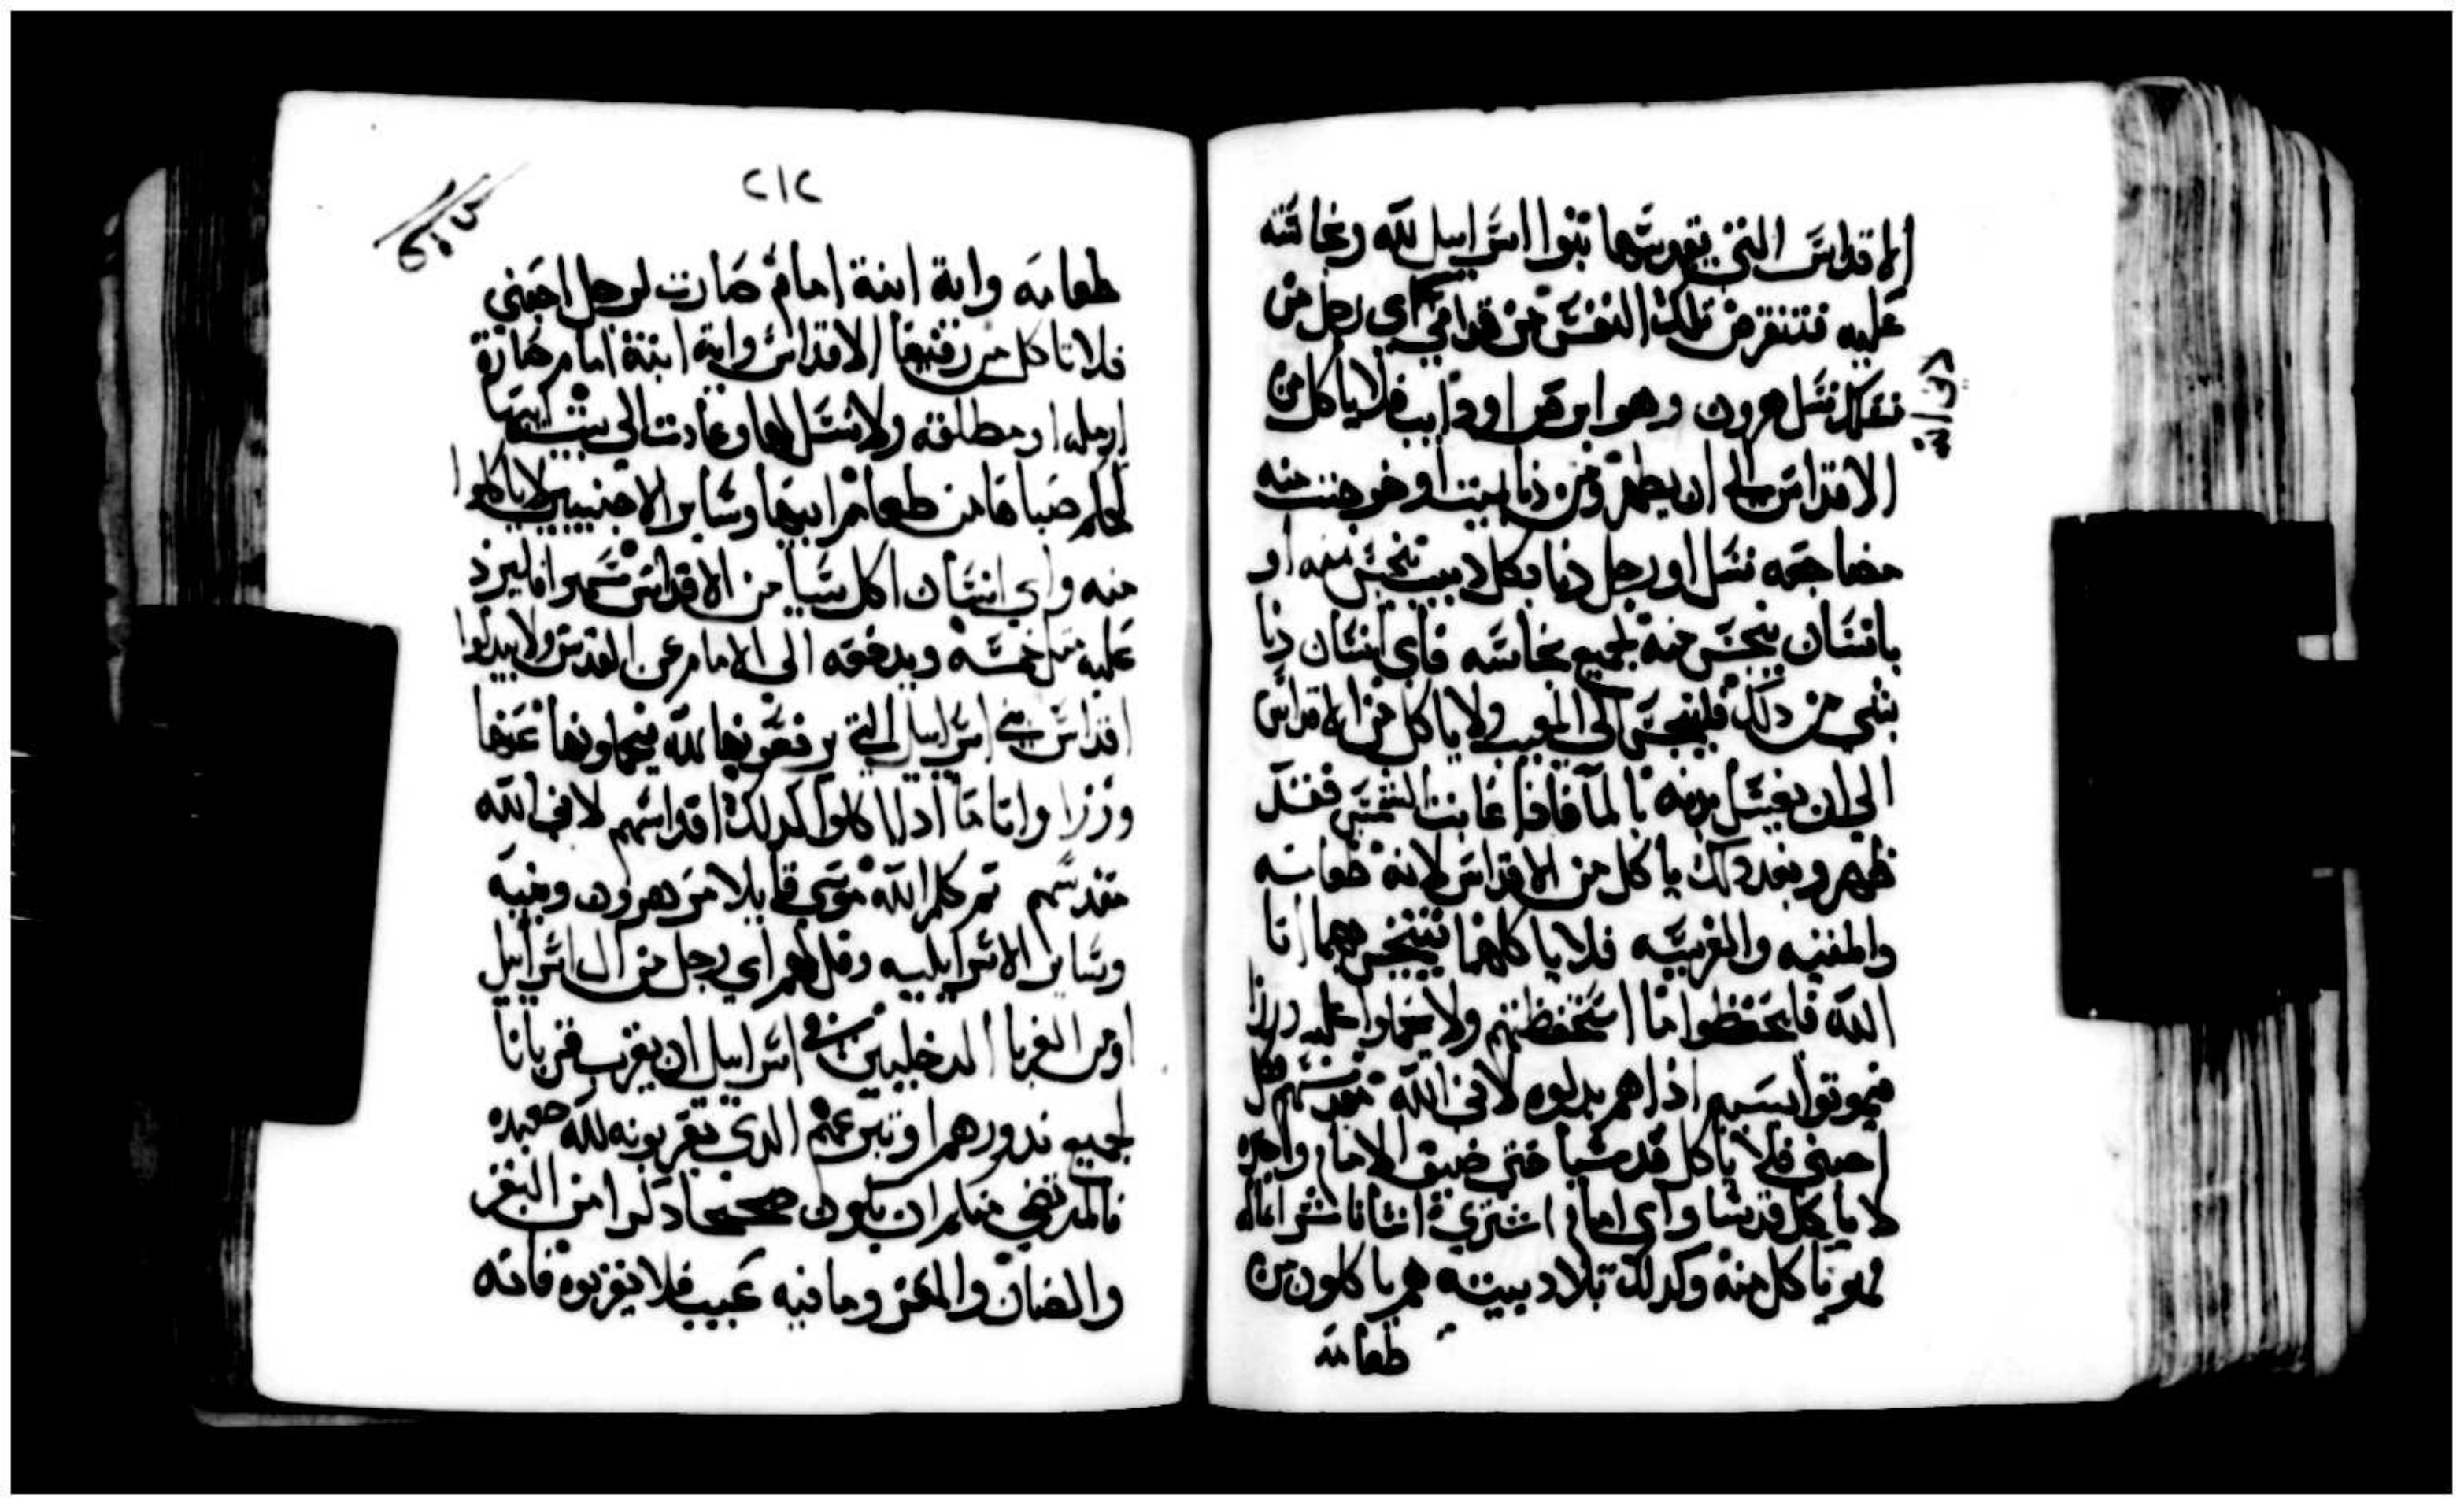 الاقداس التي يقدسها بنوا اسرايل لله ونجاسته
عليه فتنقرض تلك النفس من قدامي اي رجل من
نسل هرون وهو ابرص او دايب فلا ياكل من
الاقداس الى ان يطهر ومن دنا بميت او خرجت منه
مضاجعه نسل او رجل دنا بكل دبيب ينجس منه او
بانسان ينجس منه لجميع نجاسته فاي انسان دنا
بشي من دلك فلينجس الى المغيب ولا ياكل من الاقداس
الى ان يغسل بدنه بالما فادا غابت الشمس فقد
طهر وبعد دلك ياكل من الاقداس لانه طعامه
والمنيه والفريسه فلا ياكلها فيتنجس بهما انا
الله فاليحفظوا ما استحفظتهم ولا يحملوا عليه وزرا
فيموتوا بسببه اذا هم بدلوه لاني الله مقدسهم كل
اجنبي فلا ياكل قدسا حتى ضيف الامام واجيره
لا ياكل قدسا واي امام اشترى انسانا شرا ماله
فهو ياكل منه وكدلك تلاد بيته هم ياكلون من
طعامه
٢١٢
طعامه واية ابنة امام صارت لرجل اجنبي
فلا تاكل من رفيعة الاقداس واية ابنة امام صارة
ارمله او مطلقه ولا نسل لها وعادت الى بيت ابيها
كحكم صباها من طعام ابيها وساير الاجنبيين لا ياكلوا
منه واي انسان اكل شيا من الاقداس سهوا فاليزد
عليه مثل خمسه ويدفعه الى الامام عن القدس ولا يبدلوا
اقداس بني اسرايل التي يرفعونها لله فيحملونها عنها
وزرا واثاما اد اكلوا كدلك اقداسهم لاني الله
مقدسهم ثم كلم الله موسى قايلا مر هرون وبنيه
وساير الاسرايليه وقل لهم اي رجل من ال اسرايل
او من الغربا الدخليين في اسرايل ان يقرب قربانا
لجميع ندورهم او تبرعهم الدي يقربونه لله صعيده
فالمرتضي منكم ان يكون صحيحا دكرا من البقر
والضان والمعز وما فيه عيب فلا تقربوه فانه